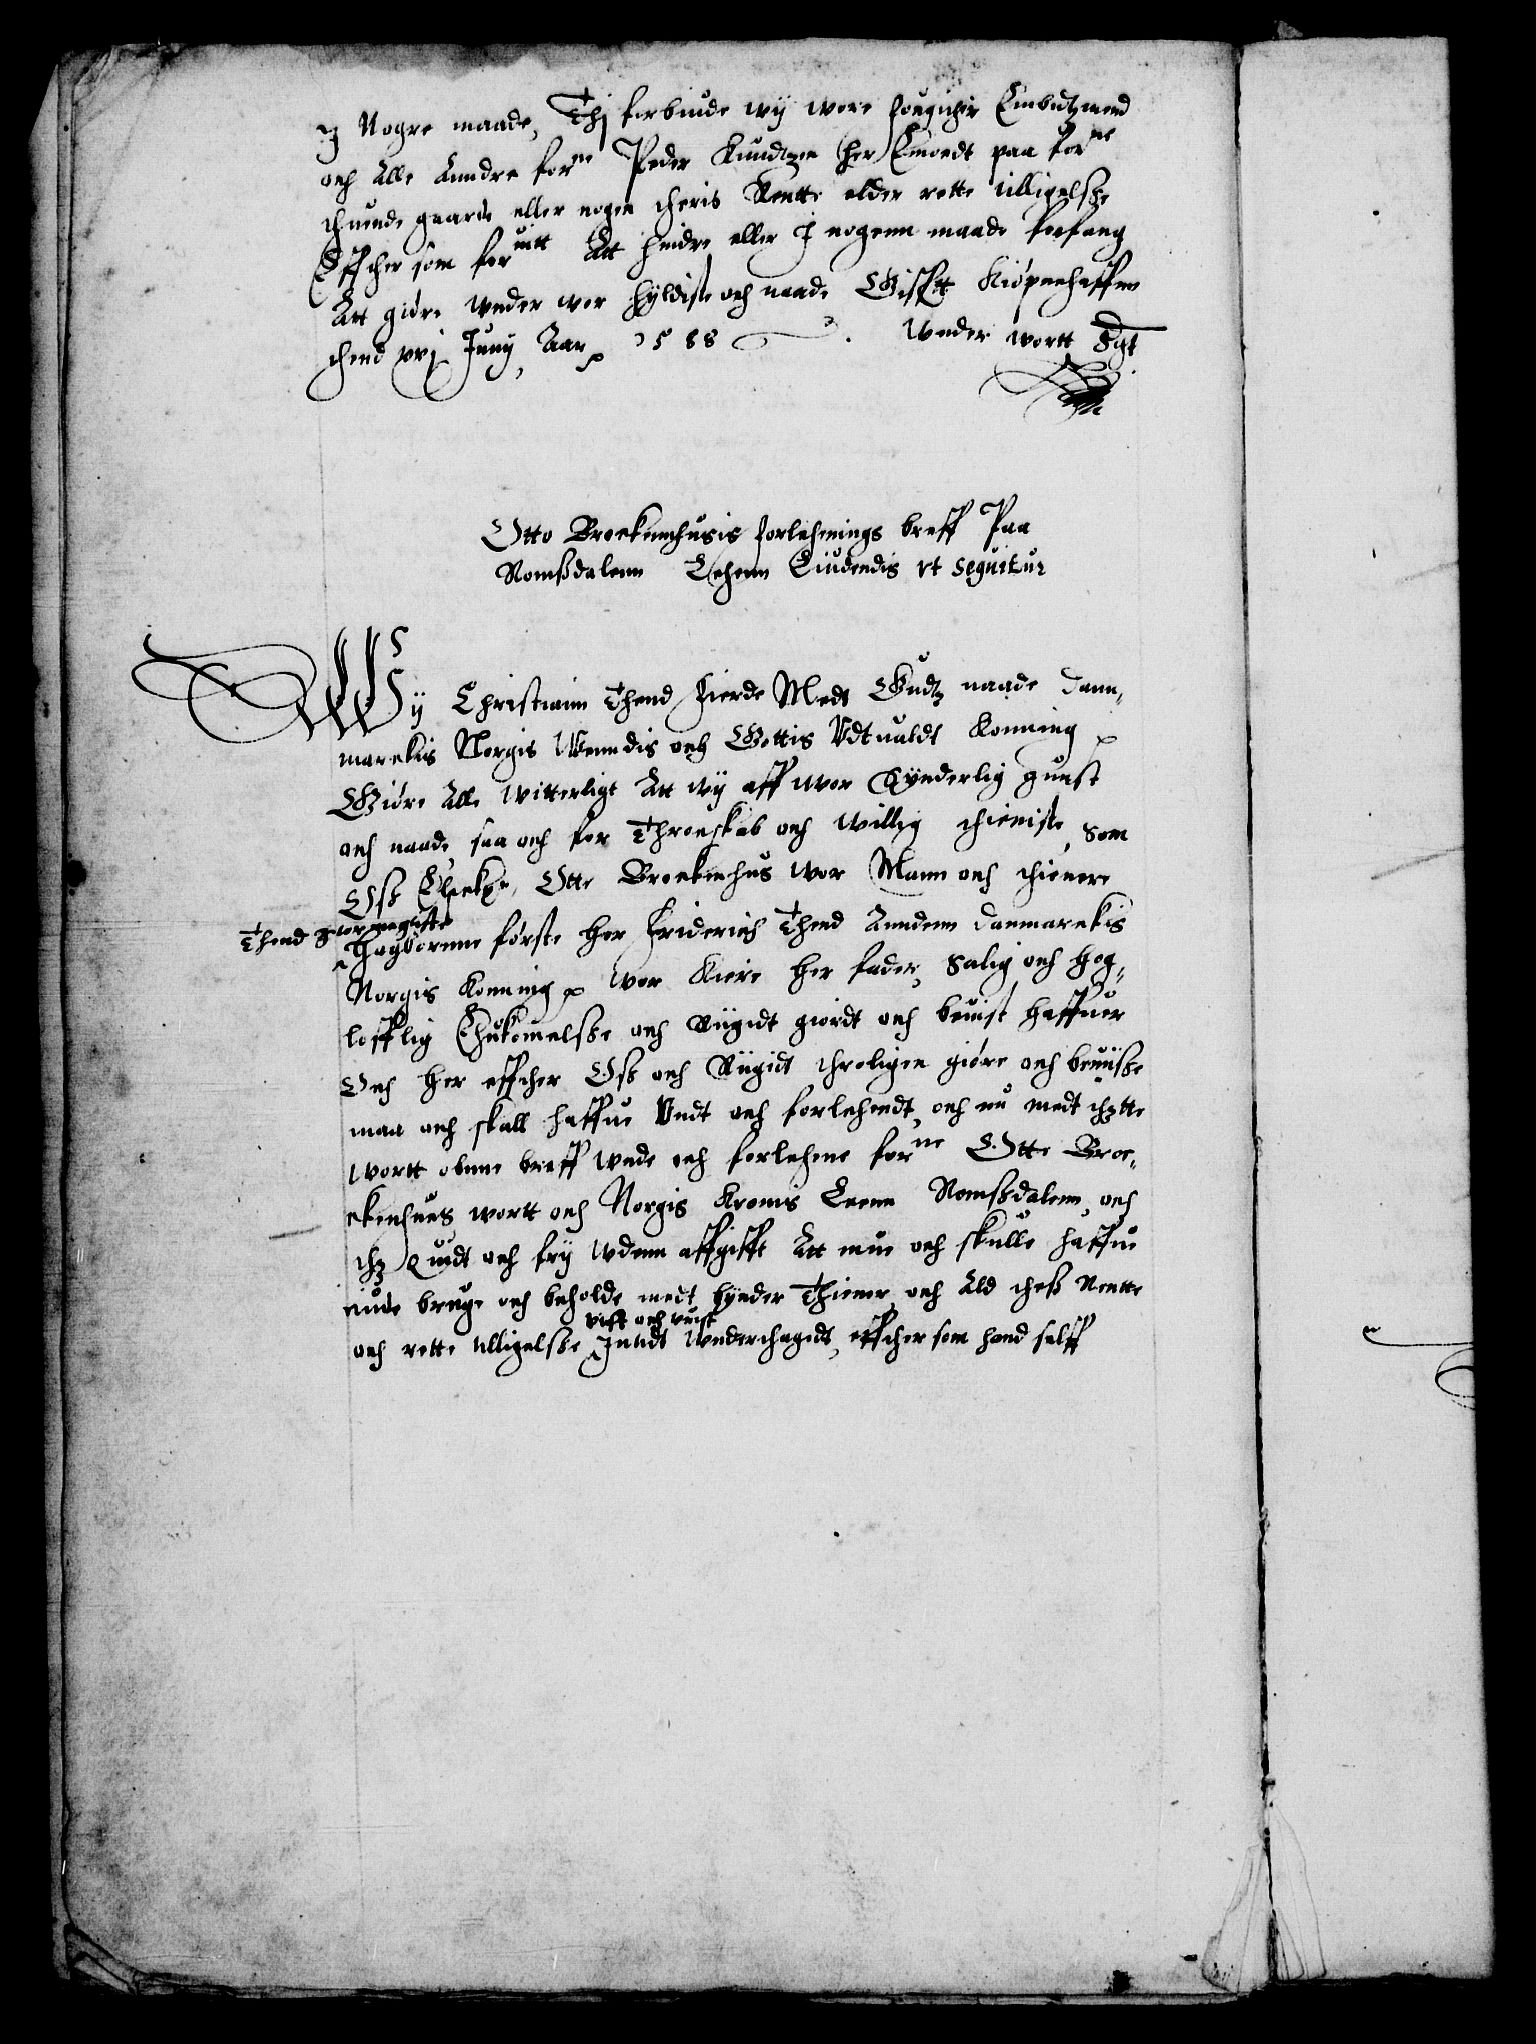 J Nogre maade, Thj forbiude wij wore fougither Embitzmend
och Alle Anndre forne Peder Knudtzen her Emoedt paa forne
thuende gaarde eller nogen theris Rentte eller rette tilligelsße
Effther som foruitt Att hindre eller J nogenn maade forfang
Att giøre wnder wor hyldiste och naade Gifftt Kiøpnehaffnn
thend xxj Junij Aar 1588 Wnder wortt Sgt
Otto Brockennhusis forlehnings breff Paa
Romßdalenn Lehenn Liudendis vt sequitur
Wij Christiann Thend Fierde Medt Gudtz naade Dann-
marckis Norgis Wenndis och Gottis Vdtualdt Konning
Giøre Alle witterligt Att wij aff wor Synderlig gunst
och naade, saa och for Throeskab och willig thieniste, som
Oß Elske Otte Brockenhus wor Mann och thienere
Thend Stormegiste
Høgborune første her Friderich Thend Anndenn Danmarckis
Norgis Konning wor Kiere her fader, Salig och høg-
lofflig Ehukomelsße och Riigidt giordt och beuist haffuer
Och her effther Oß och Riigidt throligen giøre och beuiisße
maa och skall haffue Vndt och forlehendt, och nu medt thztte
wortt obnne breff wnde och forlehene forne Otte Broc-
kenhuus wortt och Norgis Kronis Leenn Romßdalenn, och
thz Quidt och frij wdenn affgifft Att mue och skulle haffue
niude bruge och beholde medt bynder Thiener, och Ald theß Rentte
vist och vuist
och rette tilligelsße Jnttdt wnderthagidt, effther som hand selff